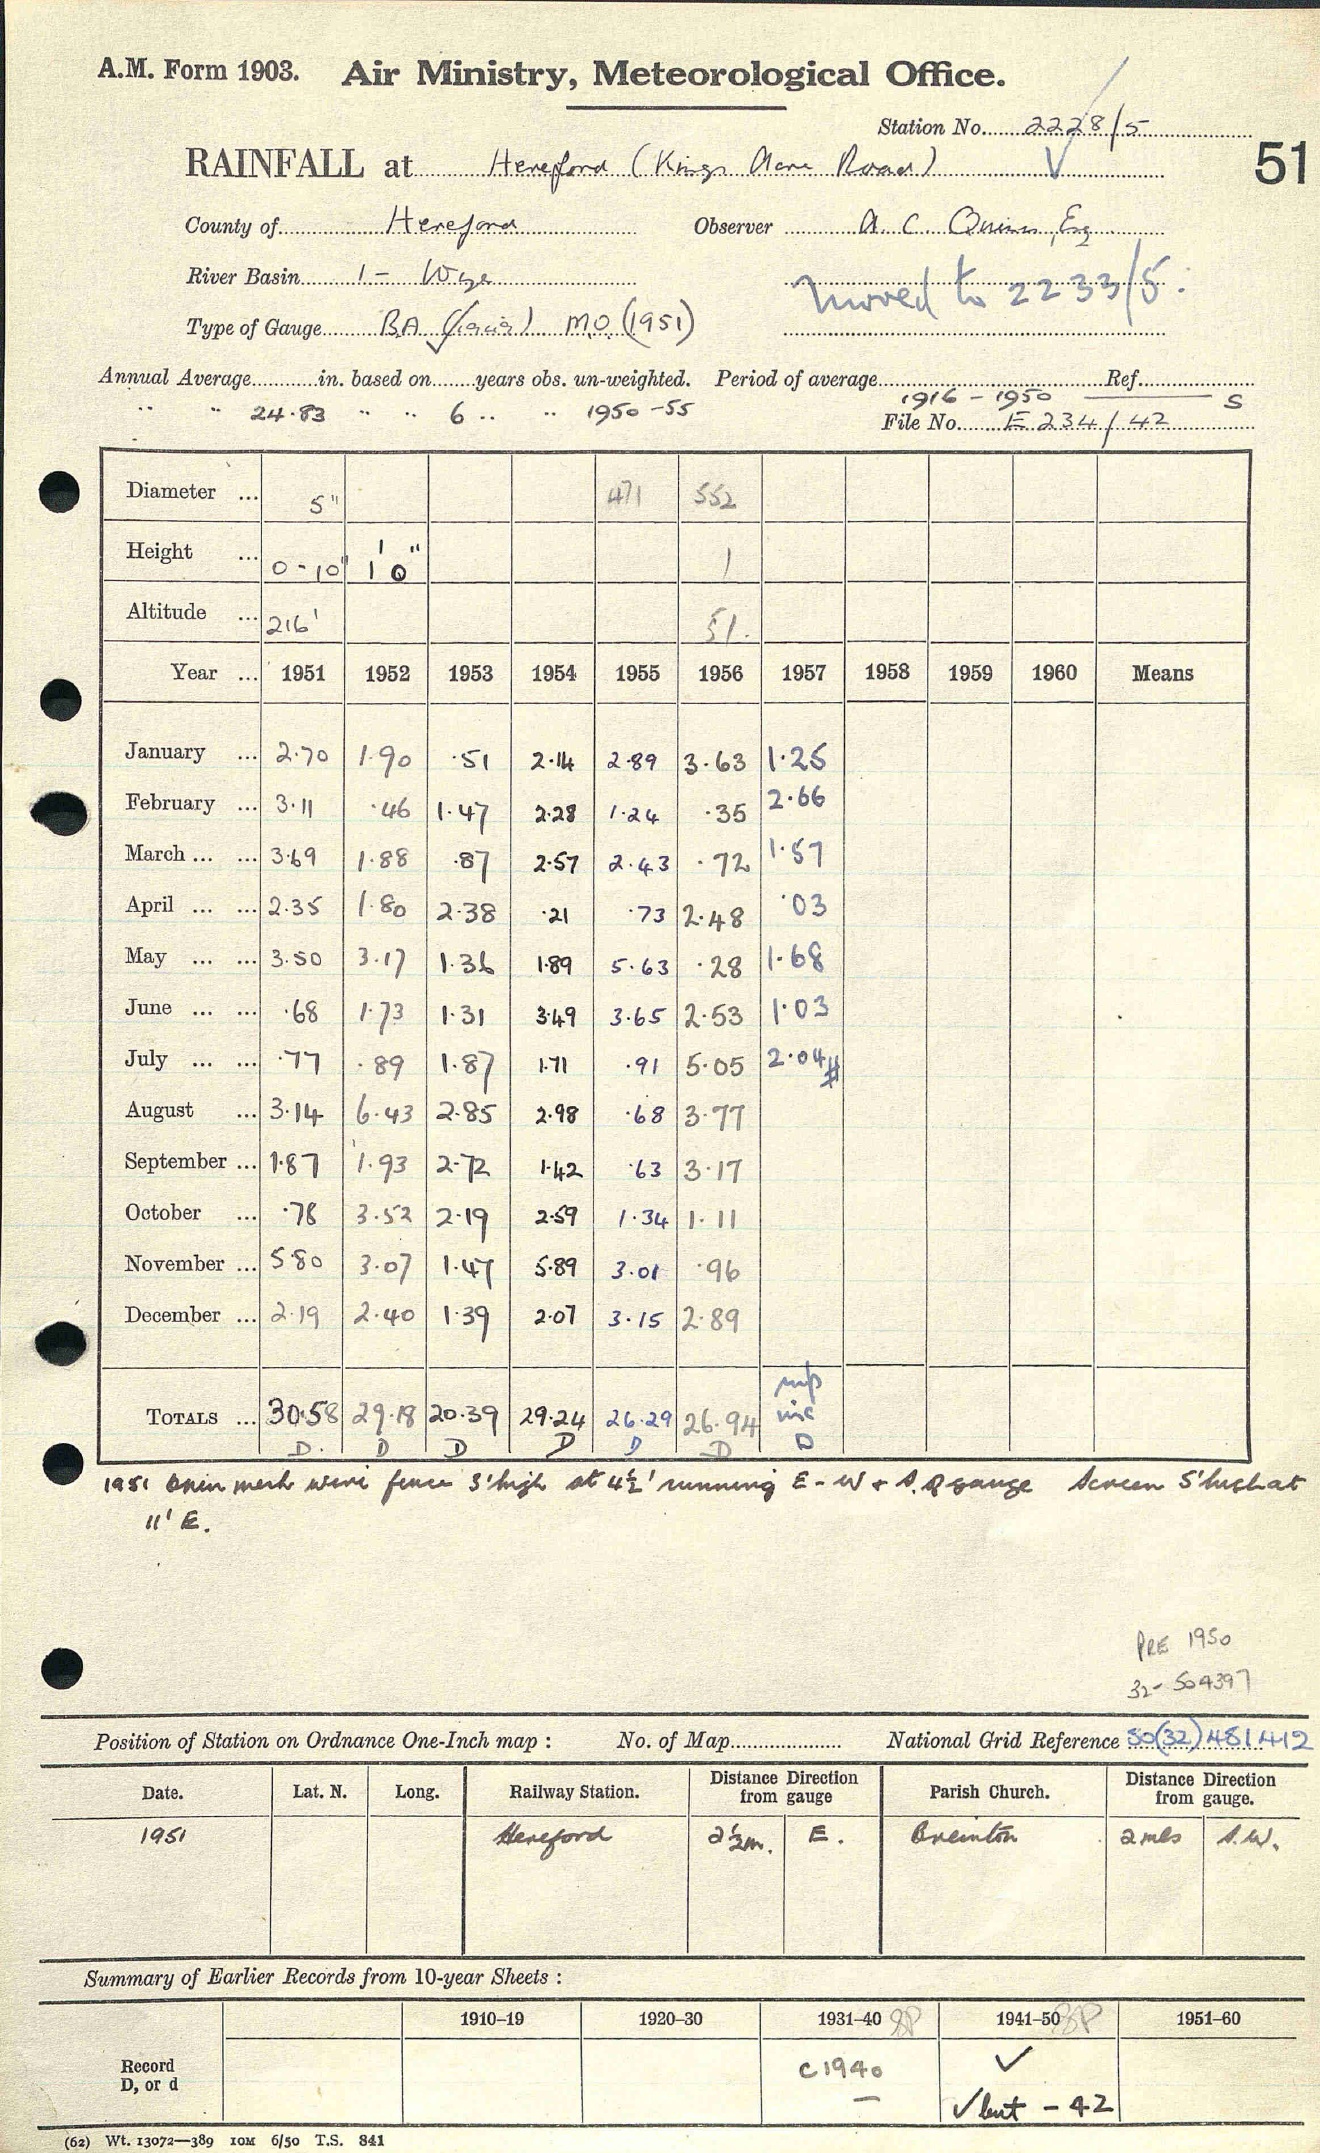 A.M. Form 1903. Air Ministry, Meteorological Office.
Station No. 2228/5
51
RAINFALL at Hereford (Kings Acre Road)
County of Hereford Observer A. C. Quinn, Esq
River Basin 1- Wye moved to 2233/5.
Type of Gauge BA M.O. (1951)
Annual Average in. based on years obs. un-weighted. Period of average 1916-1950 Ref. S
" " 24.83 " " 6 " " 1950-55 File No. E 234/42
Diameter ... 5" 471 552
Height ... 0-10" 1' 0" 1
Altitude ... 216' 51.
Year ... 1951 1952 1953 1954 1955 1956 1957 1958 1959 1960 Means
January ... 2.70 1.90 .51 2.14 2.89 3.63 1.25
February ... 3.11 .46 1.47 2.28 1.24 .35 2.66
March ... ... 3.69 1.88 .87 2.57 2.43 .72 1.57
April ... ... 2.35 1.80 2.38 .21 .73 2.48 .03
May ... ... 3.50 3.17 1.36 1.89 5.63 .28 1.68
June ... ... .68 1.73 1.31 3.49 3.65 2.53 1.03
July ... ... .77 .89 1.87 1.71 .91 5.05 2.04 #
August ... 3.14 6.43 2.85 2.98 .68 3.77
September ... 1.87 1.93 2.72 1.42 .63 3.17
October ... .78 3.52 2.19 2.59 1.34 1.11
November ... 5.80 3.07 1.47 5.89 3.01 .96
December ... 2.19 2.40 1.39 2.07 3.15 2.89
TOTALS ... 30.58 29.18 20.39 29.24 26.29 26.94 inc
D. D D D D D D
1951 Open mesh wire fence 3' high at 4½' running E-W + S. of gauge Screen 5' high at
11' E.
PRE 1950
32-504397
Position of Station on Ordnance One-Inch map : No. of Map National Grid Reference SO(32)481412
Date. Lat. N. Long. Railway Station. Distance from gauge Direction Parish Church. Distance from gauge. Direction
1951 Hereford 2½m. E. Breinton 2 mls S.W.
Summary of Earlier Records from 10-year Sheets :
1910-19 1920-30 1931-40 SP 1941-50 SP 1951-60
Record D, or d c1940 ✓
— ✓ but - 42
(62) Wt. 13072—389 10M 6/50 T.S. 841